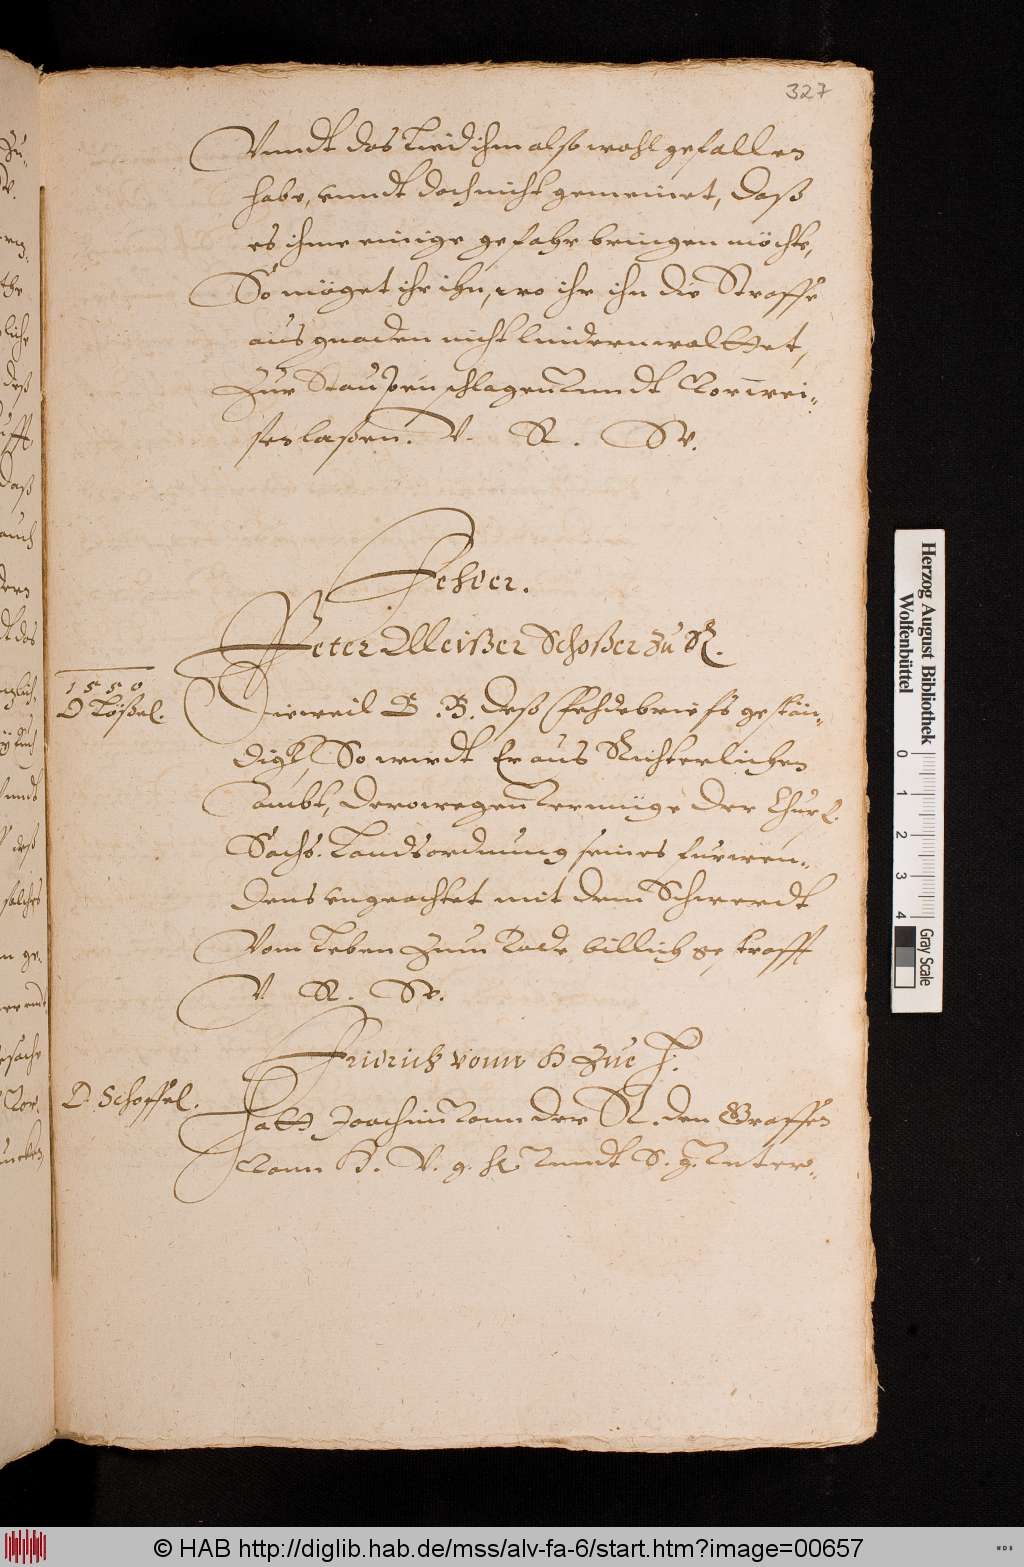 327
Vnndt das Lied ihm also wohl gefallen
habe, vnndt doch nicht gemeinet, daß
es ihme einige gefahr bringen möchte,
So möget ihr ihn, wo ihr ihn die Straffe
aus gnaden nicht lindern woltet,
Zur Staupen schlagen vnndt vorwei-
sen laßen. V. R. W.
Fehder.
Peter Meißer Schoßer zu R.
1550
D Lößel.
Dieweil B. B. deß Fehdebriefs gestän-
digk, So wirdt Er aus Richterlichen
ambt, derowegen vermüge der Churf.
Sachs. Landsordnung seines furwen-
dens vngeachtet mit dem Schwerdt
Vom Leben zum Tode billich gestrafft
V. R. W.
Fridrich vonn B zue H.
D. Schoffel.
Hatt Joachim vonn der R. den Graffen
vonn H. V. g. H. vnndt S. g. vnter-
Herzog August Bibliothek
Wolfenbüttel
0 1 2 3 4
Gray Scale
© HAB http://diglib.hab.de/mss/alv-fa-6/start.htm?image=00657